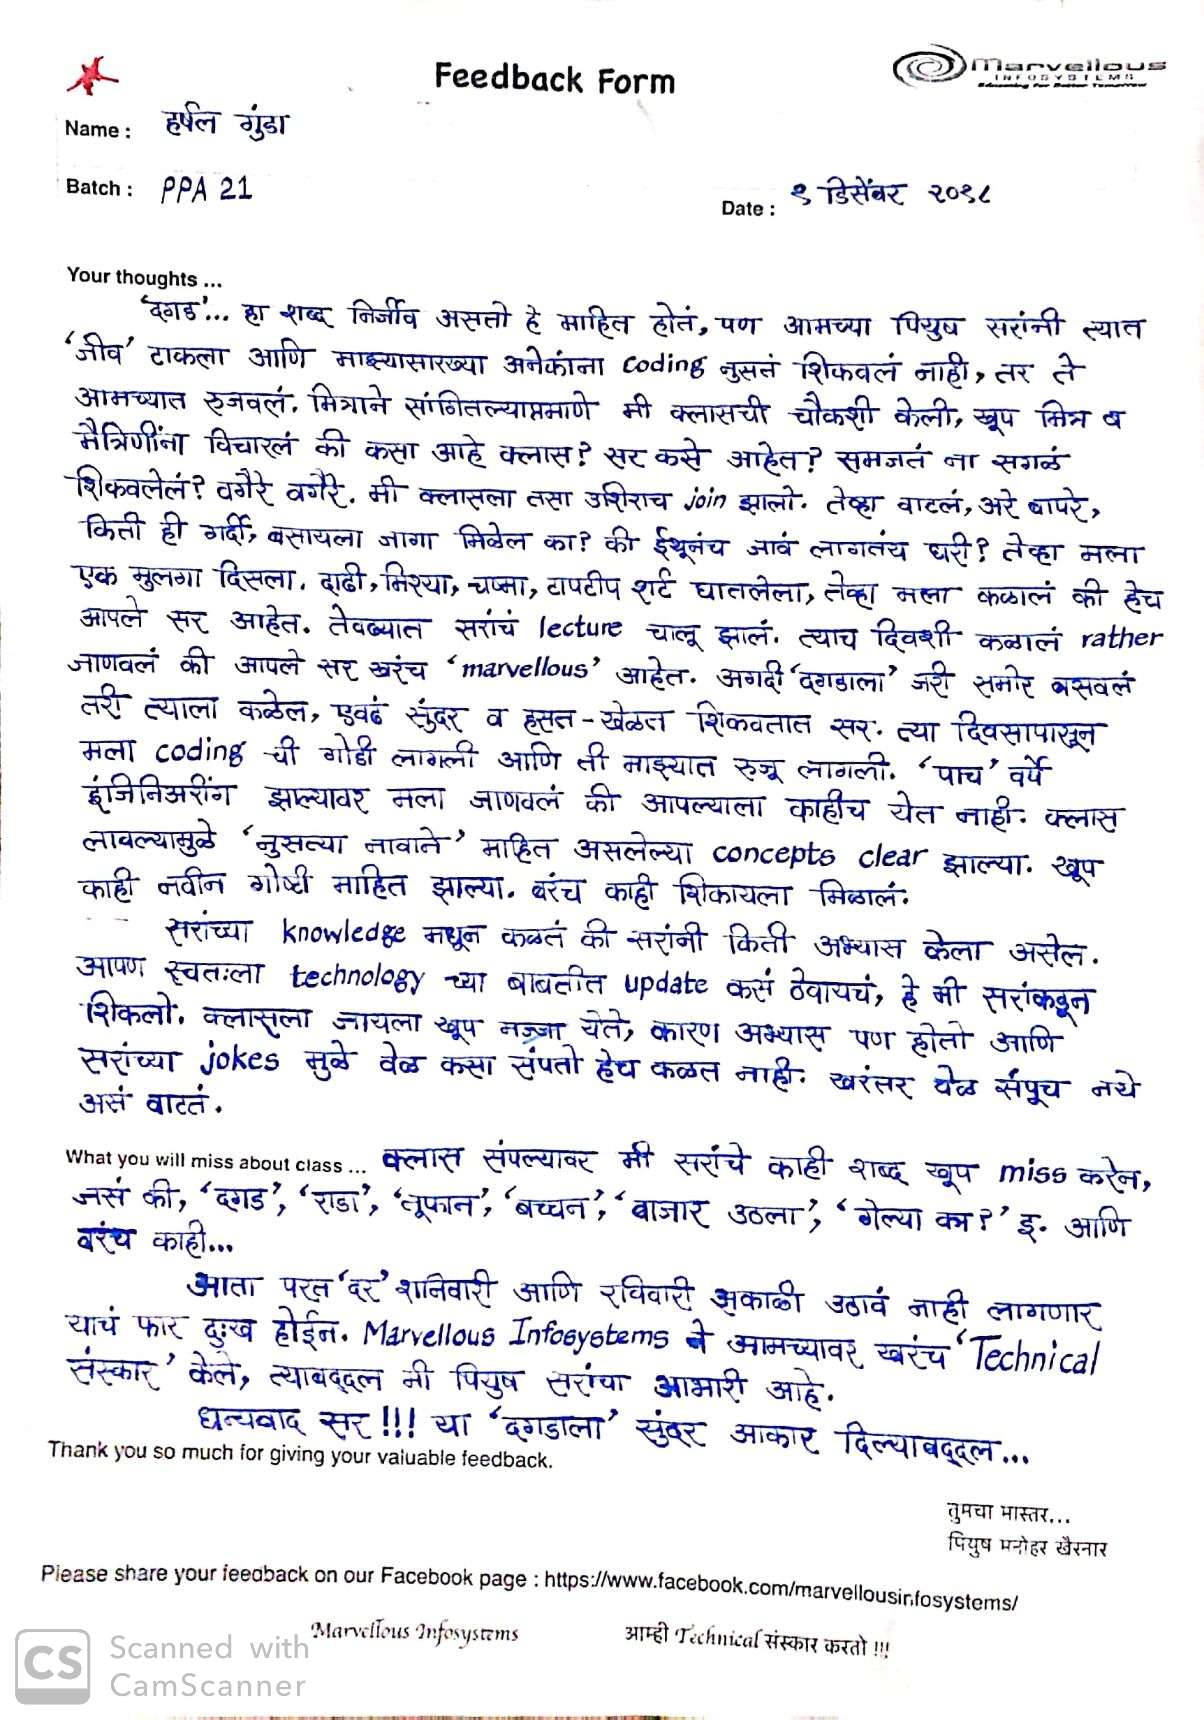 Feedback Form
Marvellous
INFOSYSTEMS
Educating For Better Tomorrow
Name : हर्षल गुंडा
Batch : PPA 21
Date : ९ डिसेंबर २०१८
Your thoughts ...
'दगड'... हा शब्द निर्जीव असतो हे माहित होतं, पण आमच्या पियुष सरांनी त्यात
'जीव' टाकला आणि माझ्यासारख्या अनेकांना coding नुसतं शिकवलं नाही, तर ते
आमच्यात रुजवलं. मित्राने सांगितल्याप्रमाणे मी क्लासची चौकशी केली, खूप मित्र व
मैत्रिणींना विचारलं की कसा आहे क्लास? सर कसे आहेत? समजतं ना सगळं
शिकवलेलं? वगैरे वगैरे. मी क्लासला तसा उशिराच join झालो. तेव्हा वाटलं, अरे बापरे,
किती ही गर्दी, बसायला जागा मिळेल का? की ईथूनंच जावं लागतंय घरी? तेव्हा मला
एक मुलगा दिसला. दाढी, मिश्या, चष्मा, टापटीप शर्ट घातलेला, तेव्हा मला कळालं की हेच
आपले सर आहेत. तेवढ्यात सरांचं lecture चालू झालं. त्याच दिवशी कळालं rather
जाणवलं की आपले सर खरंच 'marvellous' आहेत. अगदी 'दगडाला' जरी समोर बसवलं
तरी त्याला कळेल, एवढं सुंदर व हसत-खेळत शिकवतात सर. त्या दिवसापासून
मला coding ची गोडी लागली आणि ती माझ्यात रुजू लागली. 'पाच' वर्षे
इंजिनिअरींग झाल्यावर मला जाणवलं की आपल्याला काहीच येत नाही. क्लास
लावल्यामुळे 'नुसत्या नावाने' माहित असलेल्या concepts clear झाल्या. खूप
काही नवीन गोष्टी माहित झाल्या. बरंच काही शिकायला मिळालं.
सरांच्या knowledge मधून कळतं की सरांनी किती अभ्यास केला असेल.
आपण स्वतःला technology च्या बाबतीत update कसं ठेवायचं, हे मी सरांकडून
शिकलो. क्लासला जायला खूप मज्जा येते, कारण अभ्यास पण होतो आणि
सरांच्या jokes मुळे वेळ कसा संपतो हेच कळत नाही. खरंतर वेळ संपूच नये
असं वाटतं.
What you will miss about class ... क्लास संपल्यावर मी सरांचे काही शब्द खूप miss करेन,
जसं की, 'दगड', 'राडा', 'तूफान', 'बच्चन', 'बाजार उठला', 'गेल्या का?' इ. आणि
बरंच काही...
आता परत 'दर' शनिवारी आणि रविवारी अकाळी उठावं नाही लागणार
याचं फार दुःख होईन. Marvellous Infosystems ने आमच्यावर खरंच 'Technical
संस्कार' केले, त्याबद्दल मी पियुष सरांचा आभारी आहे.
धन्यवाद सर!!! या 'दगडाला' सुंदर आकार दिल्याबद्दल...
Thank you so much for giving your valuable feedback.
तुमचा मास्तर...
पियुष मनोहर खैरनार
Please share your feedback on our Facebook page : https://www.facebook.com/marvellousinfosystems/
Marvellous Infosystems आम्ही Technical संस्कार करतो !!!
CS Scanned with
CamScanner